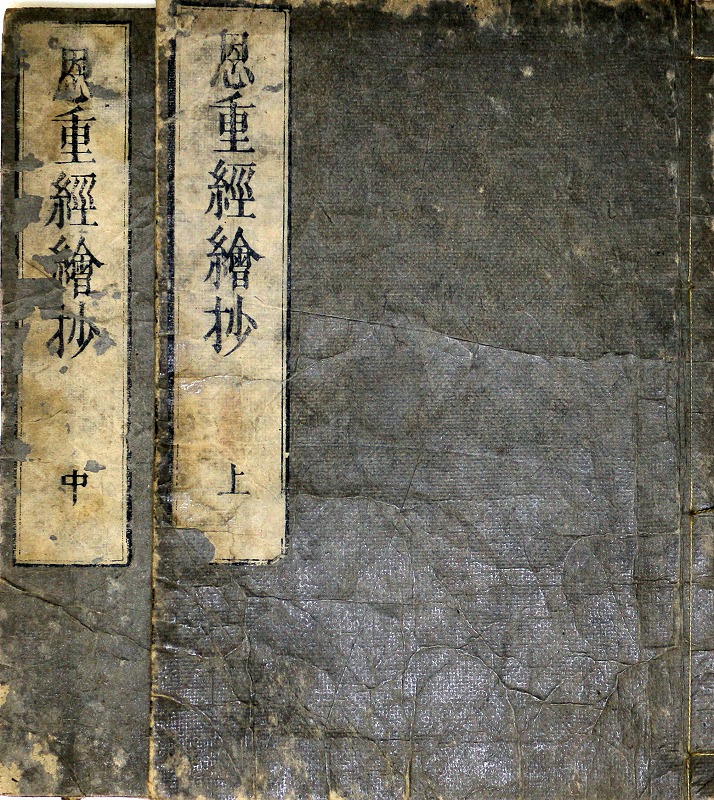 恩重經繪抄 上
恩重經繪抄 中